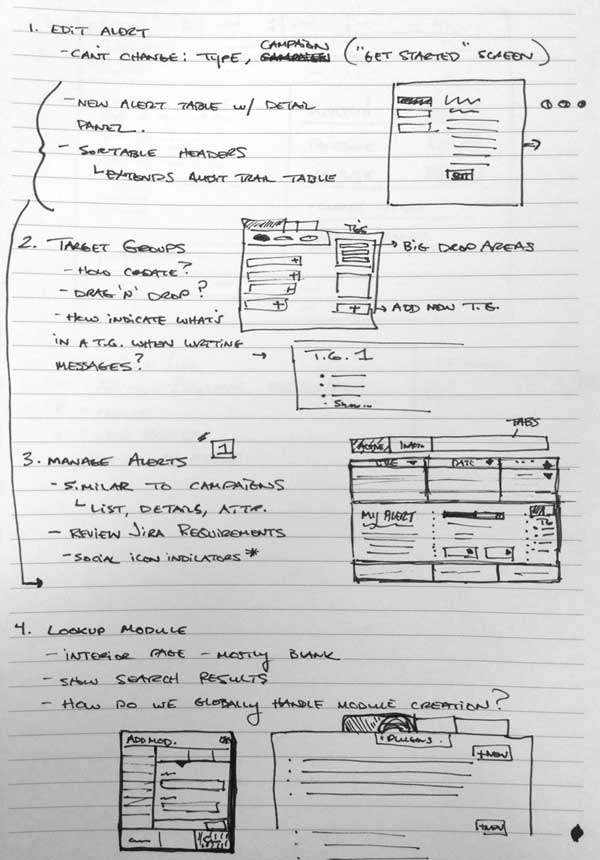 1. EDIT ALERT
- CAN'T CHANGE: TYPE, CAMPAIGN ("GET STARTED" SCREEN)
- NEW ALERT TABLE W/ DETAIL
PANEL.
- SORTABLE HEADERS
EXTENDS AUDIT TRAIL TABLE
EDIT
2. TARGET GROUPS
- HOW CREATE?
- DRAG 'N' DROP?
- HOW INDICATE WHAT'S
IN A T.G. WHEN WRITING
MESSAGES?
TG'S
BIG DROP AREAS
ADD NEW T.G.
T.G. 1
SHOW...
3. MANAGE ALERTS
* 1
- SIMILAR TO CAMPAIGNS
LIST, DETAILS, ATTR.
- REVIEW JIRA REQUIREMENTS
- SOCIAL ICON INDICATORS *
TABS
ACTIVE
TITLE
DATE
MY ALERT
TG
4. LOOKUP MODULE
- INTERIOR PAGE - MOSTLY BLANK
- SHOW SEARCH RESULTS
- HOW DO WE GLOBALLY HANDLE MODULE CREATION?
ADD MOD.
PLUGINS
+NEW
+NEW